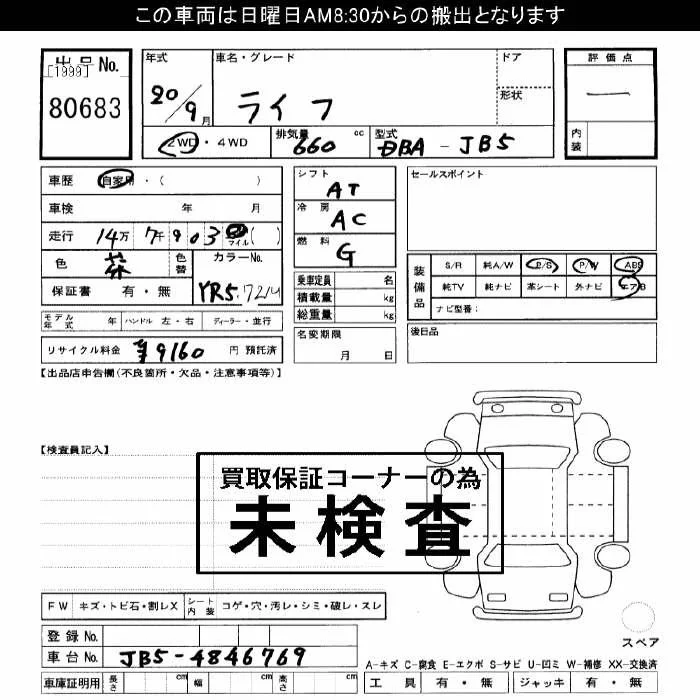 この車両は日曜日AM8:30からの搬出となります
出品No.
[1999]
80683
年式
20/9月
車名・グレード
ライフ
ドア
形状
評価点
一
内装
2WD・4WD
排気量
660 cc
型式
DBA - JB5
車歴
自家用・( )
車検 年 月
走行 14万 7千903 マイル( )
色 茶
色替
カラーNo.
YR5
保証書 有・無
モデル年式 年
ハンドル 左・右
ディーラー・並行
リサイクル料金 ¥9160 円 預託済
シフト
AT
冷房
AC
燃料
G
乗車定員 名
積載量 kg
総重量 kg
名変期限
月 日
セールスポイント
装備品
S/R 純A/W P/S P/W ABS
純TV 純ナビ 革シート 外ナビ エアB
ナビ型番:
後日品
【出品店申告欄(不良箇所・欠品・注意事項等)】
【検査員記入】
買取保証コーナーの為
未検査
FW キズ・トビ石・割レX
シート内装 コゲ・穴・汚レ・シミ・破レ・スレ
登録No.
車台No. JB5-4846769
車庫証明用 長さ cm 幅 cm 高さ cm
スペア
A-キズ C-腐食 E-エクボ S-サビ U-凹ミ W-補修 XX-交換済
工具 有・無 ジャッキ 有・無